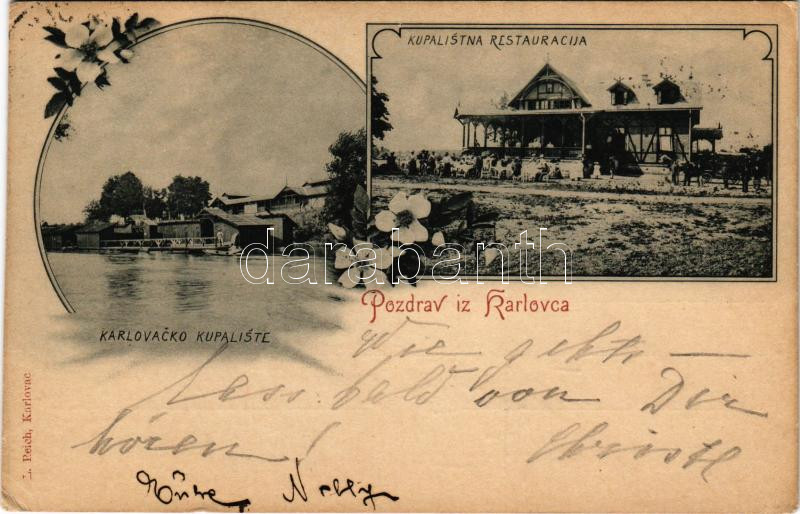 KUPALIŠTNA RESTAURACIJA
darabanth
Pozdrav iz Karlovca
KARLOVAČKO KUPALIŠTE
L. Reich, Karlovac
Wie geht's —
Lass bald von Dir
hören!
Nelly